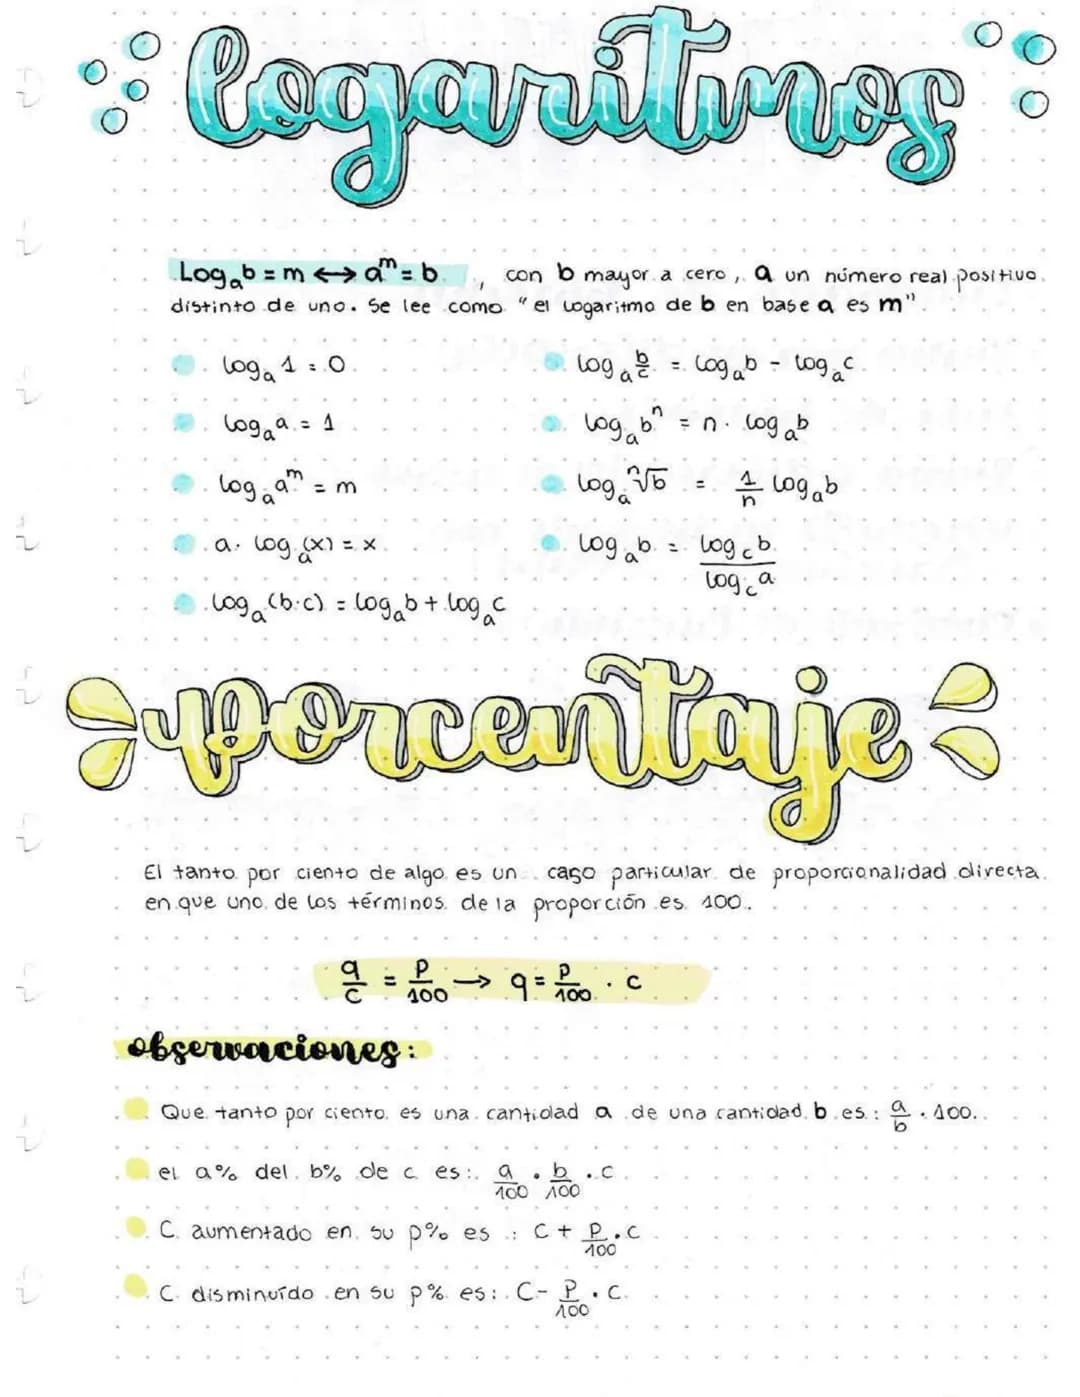 logaritmos
Log_a b = m ↔ a^m = b , con b mayor a cero, a un número real positivo
distinto de uno. Se lee como "el logaritmo de b en base a es m"
log_a 1 = 0
log_a a = 1
log_a a^m = m
a. log_a (x) = x
log_a (b·c) = log_a b + log_a c
log_a b/c = log_a b - log_a c
log_a b^n = n · log_a b
log_a ⁿ√b = 1/n log_a b
log_a b = log_c b / log_c a
porcentaje
El tanto por ciento de algo es un caso particular de proporcionalidad directa
en que uno de los términos de la proporción es 100.
q/c = P/100 → q = P/100 · c
observaciones:
Que tanto por ciento es una cantidad a de una cantidad b es: a/b · 100.
el a% del b% de c es: a/100 · b/100 · c
C aumentado en su p% es: C + P/100 · C
C disminuído en su p% es: C - P/100 · C